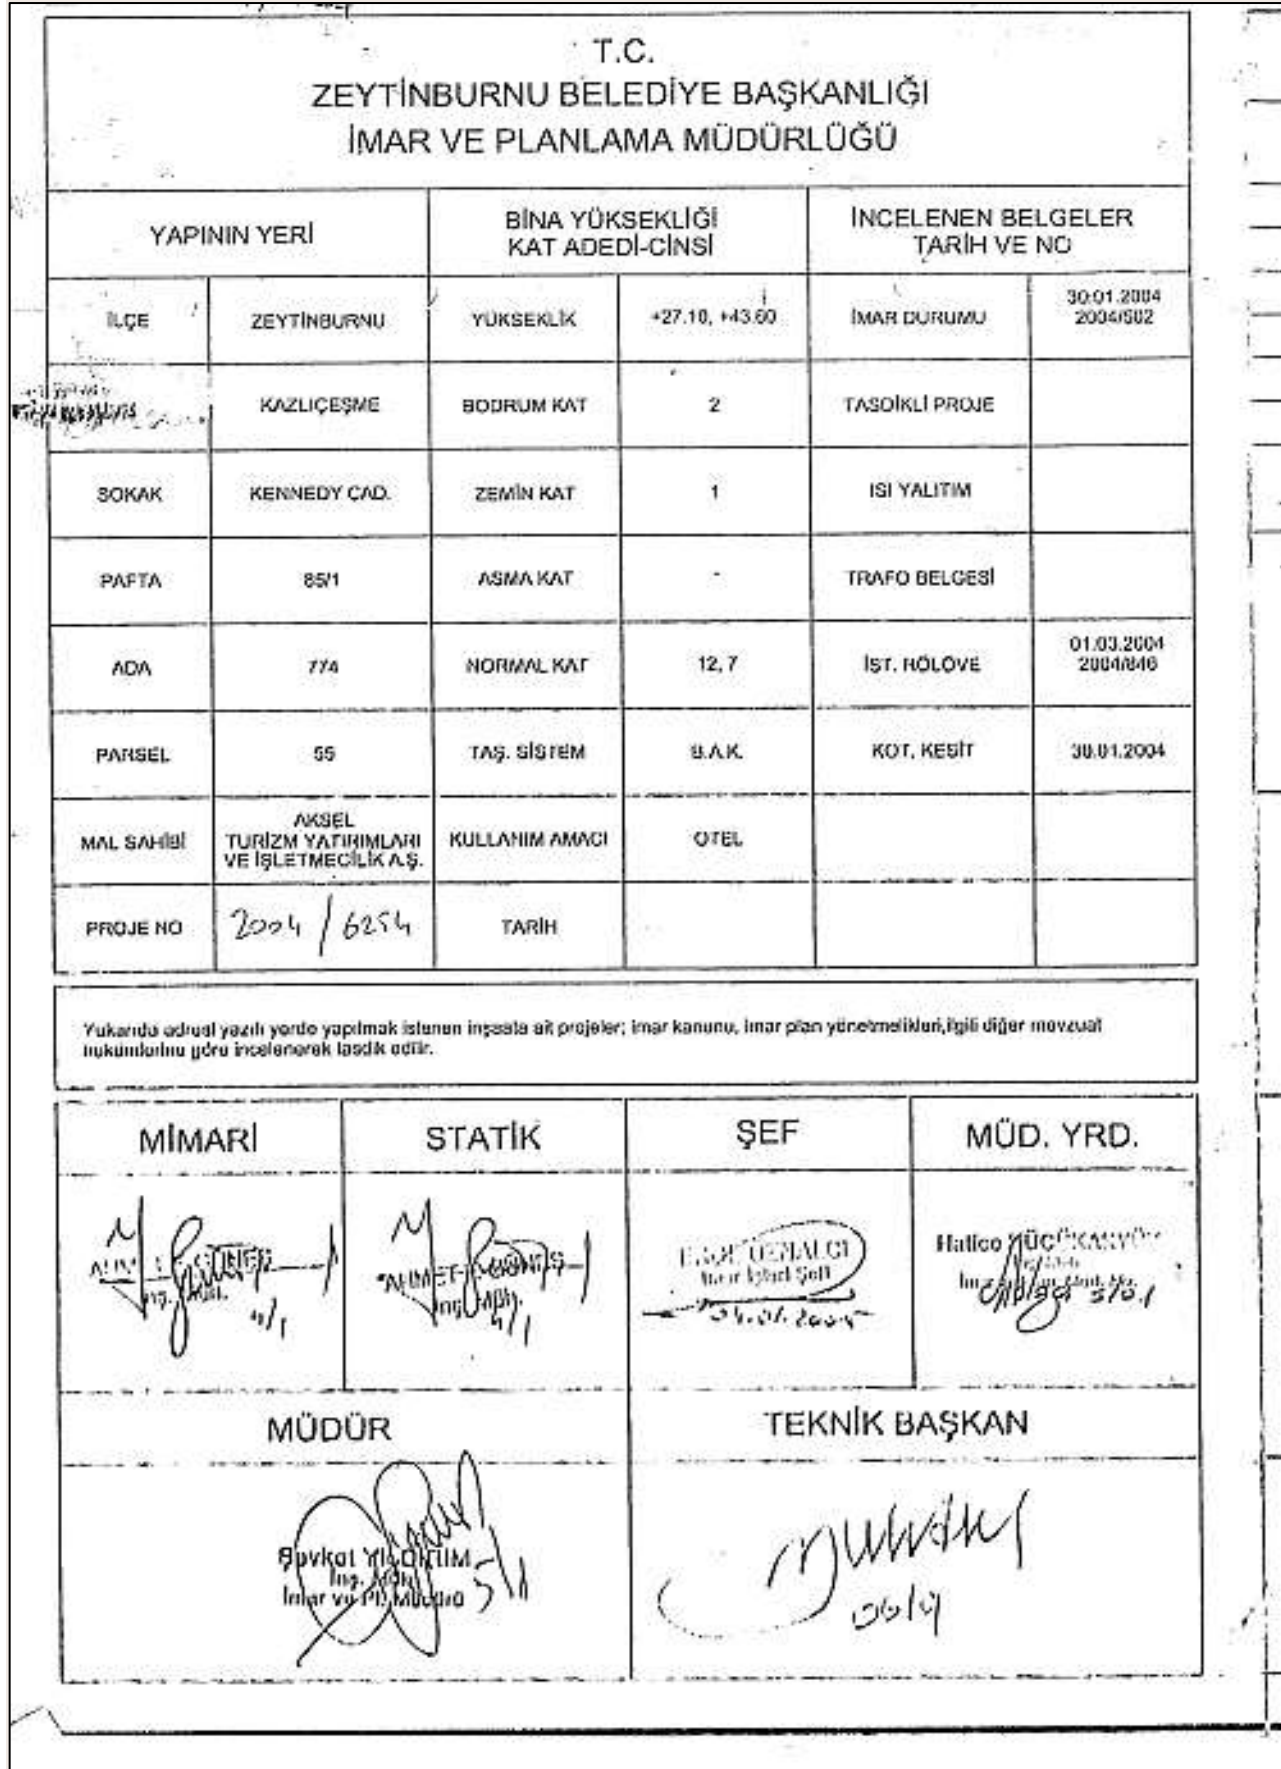 T.C.
ZEYTİNBURNU BELEDİYE BAŞKANLIĞI
İMAR VE PLANLAMA MÜDÜRLÜĞÜ
YAPININ YERİ
BİNA YÜKSEKLİĞİ
KAT ADEDİ-CİNSİ
İNCELENEN BELGELER
TARİH VE NO
İLÇE ZEYTİNBURNU YÜKSEKLİK +27.10, +43.60 İMAR DURUMU 30.01.2004
2004/502
KAZLIÇEŞME BODRUM KAT 2 TASDİKLİ PROJE
SOKAK KENNEDY CAD. ZEMİN KAT 1 ISI YALITIM
PAFTA 85/1 ASMA KAT - TRAFO BELGESİ
ADA 774 NORMAL KAT 12, 7 İST. RÖLÖVE 01.03.2004
2004/846
PARSEL 55 TAŞ. SİSTEM B.A.K. KOT. KESİT 30.01.2004
MAL SAHİBİ AKSEL
TURİZM YATIRIMLARI
VE İŞLETMECİLİK A.Ş.
KULLANIM AMACI OTEL
PROJE NO 2004 / 6254 TARİH
Yukarıda adresi yazılı yerde yapılmak istenen inşaata ait projeler; imar kanunu, imar plan yönetmelikleri,ilgili diğer mevzuat
hükümlerine göre incelenerek tasdik edilir.
MİMARİ STATİK ŞEF MÜD. YRD.
AHMET GÜNEŞ
İnş. Müh.
4/1
AHMET GÜNEŞ
İnş. Müh.
4/1
İmar İşleri Şefi
04.01.2005
Hatice
5/0.1
MÜDÜR TEKNİK BAŞKAN
Şevket YILDIRIM
İnş. Müh.
İmar ve Pl. Müdürü
5/1